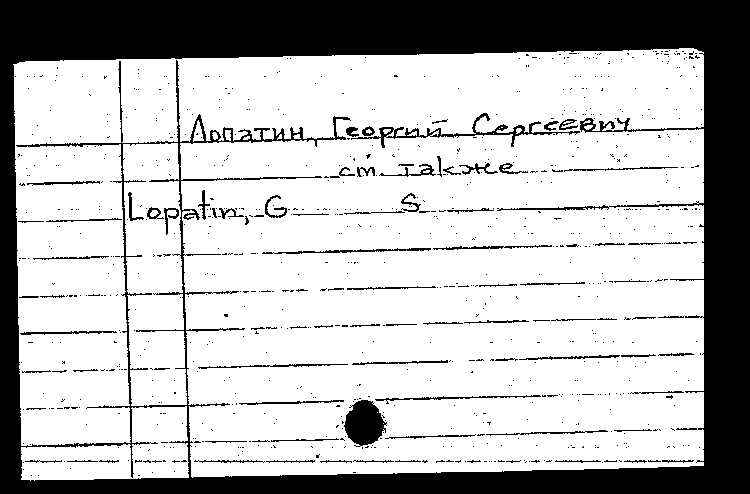 Лопатин, Георгий Сергеевич
см. также
Lopatin, G S